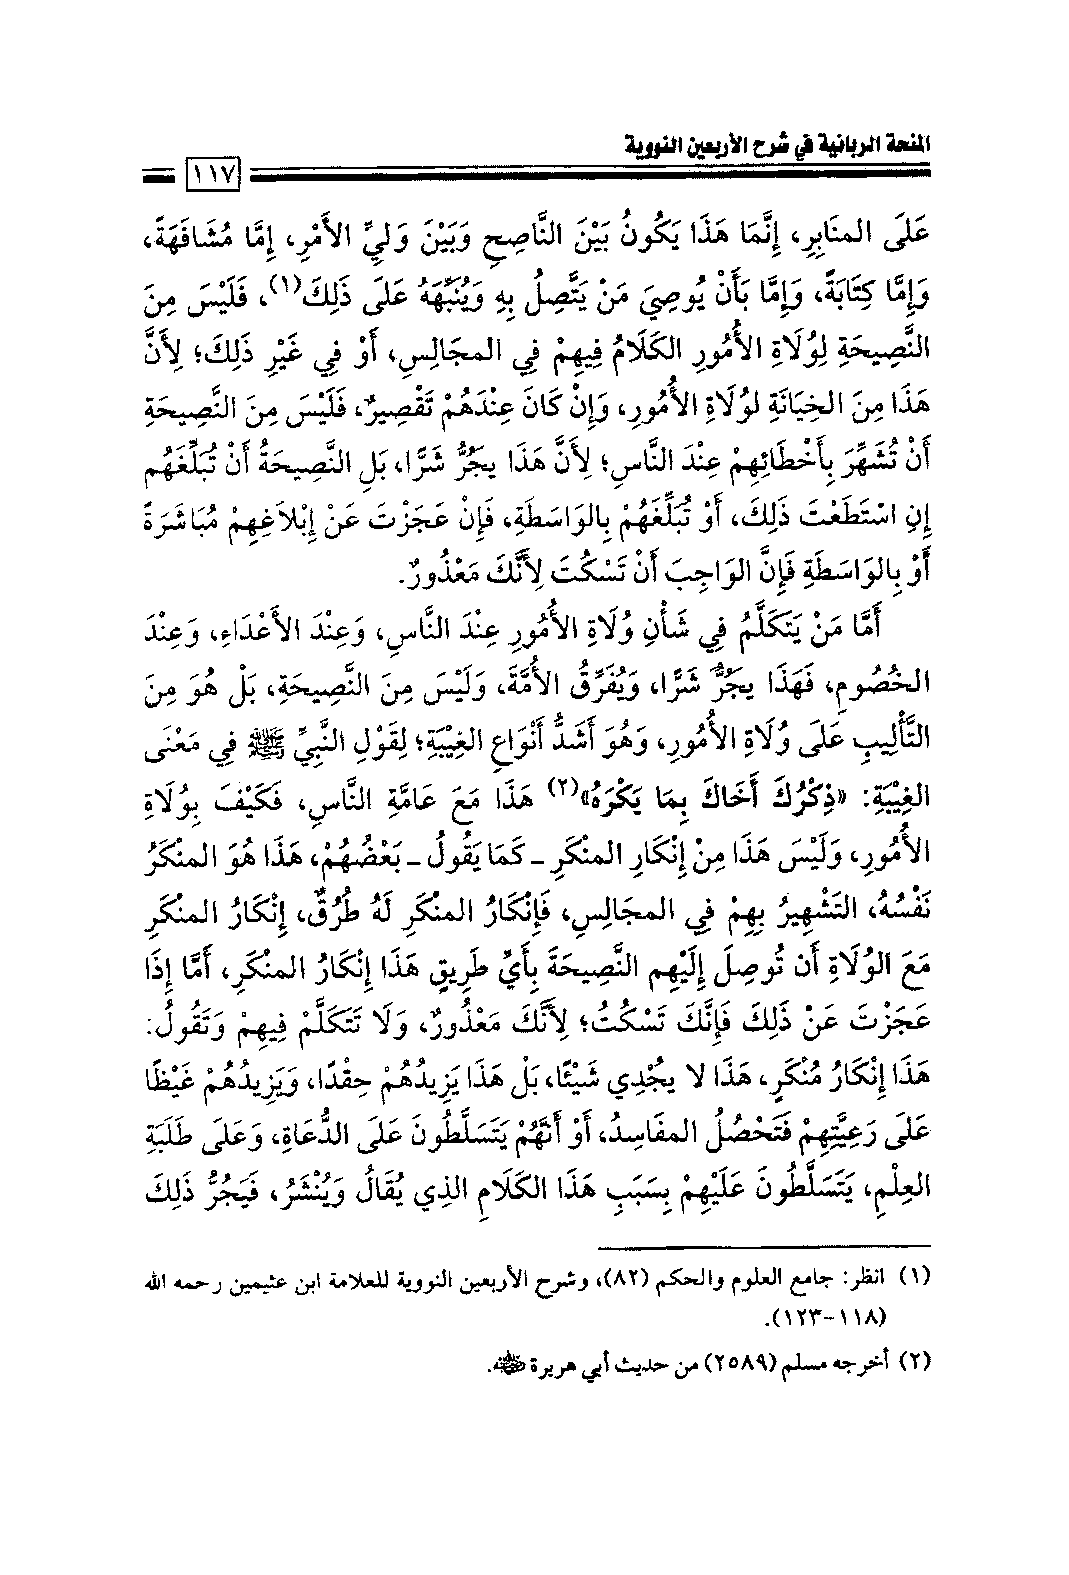 المنحة الربانية في شرح الأربعين النووية
١١٧
عَلَى المنَابِرِ، إِنَّمَا هَذَا يَكُونُ بَيْنَ النَّاصِحِ وَبَيْنَ وَلِيِّ الأَمْرِ، إِمَّا مُشَافَهَةً،
وَإِمَّا كِتَابَةً، وَإِمَّا بَأَنْ يُوصِيَ مَنْ يَتَّصِلُ بِهِ وَيُنَبِّهَهُ عَلَى ذَلِكَ(١)، فَلَيْسَ مِنَ
النَّصِيحَةِ لِوُلَاةِ الأُمُورِ الكَلَامُ فِيهِمْ فِي المجَالِسِ، أَوْ فِي غَيْرِ ذَلِكَ؛ لِأَنَّ
هَذَا مِنَ الخِيَانَةِ لوُلَاةِ الأُمُورِ، وَإِنْ كَانَ عِنْدَهُمْ تَقْصِيرٌ، فَلَيْسَ مِنَ النَّصِيحَةِ
أَنْ تُشَهِّرَ بِأَخْطَائِهِمْ عِنْدَ النَّاسِ؛ لِأَنَّ هَذَا يَجُرُّ شَرًّا، بَلِ النَّصِيحَةُ أَنْ تُبَلِّغَهُم
إِنِ اسْتَطَعْتَ ذَلِكَ، أَوْ تُبَلِّغَهُمْ بِالوَاسَطَةِ، فَإِنْ عَجَزْتَ عَنْ إِبْلَاغِهِمْ مُبَاشَرَةً
أَوْ بِالوَاسَطَةِ فَإِنَّ الوَاجِبَ أَنْ تَسْكُتَ لِأَنَّكَ مَعْذُورٌ.
أَمَّا مَنْ يَتَكَلَّمُ فِي شَأْنِ وُلَاةِ الأُمُورِ عِنْدَ النَّاسِ، وَعِنْدَ الأَعْدَاءِ، وَعِنْدَ
الخُصُومِ، فَهَذَا يَجُرُّ شَرًّا، وَيُفَرِّقُ الأُمَّةَ، وَلَيْسَ مِنَ النَّصِيحَةِ، بَلْ هُوَ مِنَ
التَّأْلِيبِ عَلَى وُلَاةِ الأُمُورِ، وَهُوَ أَشَدُّ أَنْوَاعِ الغِيْبَةِ؛ لِقَوْلِ النَّبِيِّ ﷺ فِي مَعْنَى
الغِيْبَةِ: «ذِكْرُكَ أَخَاكَ بِمَا يَكْرَهُ»(٢) هَذَا مَعَ عَامَّةِ النَّاسِ، فَكَيْفَ بِوُلَاةِ
الأُمُورِ، وَلَيْسَ هَذَا مِنْ إِنْكَارِ المنْكَرِ ـ كَمَا يَقُولُ ـ بَعْضُهُمْ، هَذَا هُوَ المنْكَرُ
نَفْسُهُ، التَّشْهِيرُ بِهِمْ فِي المجَالِسِ، فَإِنْكَارُ المنْكَرِ لَهُ طُرُقٌ، إِنْكَارُ المنْكَرِ
مَعَ الوُلَاةِ أَن تُوصِلَ إِلَيْهِم النَّصِيحَةَ بِأَيِّ طَرِيقٍ هَذَا إِنْكَارُ المنْكَرِ، أَمَّا إِذَا
عَجَزْتَ عَنْ ذَلِكَ فَإِنَّكَ تَسْكُتُ؛ لِأَنَّكَ مَعْذُورٌ، وَلَا تَتَكَلَّمْ فِيهِمْ وَتَقُولُ:
هَذَا إِنْكَارُ مُنْكَرٍ، هَذَا لا يُجْدِي شَيْئًا، بَلْ هَذَا يَزِيدُهُمْ حِقْدًا، وَيَزِيدُهُمْ غَيْظًا
عَلَى رَعِيَّتِهِمْ فَتَحْصُلُ المفَاسِدُ، أَوْ أَنَّهُمْ يَتَسَلَّطُونَ عَلَى الدُّعَاةِ، وَعَلَى طَلَبَةِ
العِلْمِ، يَتَسَلَّطُونَ عَلَيْهِمْ بِسَبَبِ هَذَا الكَلَامِ الذِي يُقَالُ وَيُنْشَرُ، فَيَجُرُّ ذَلِكَ
(١) انظر: جامع العلوم والحكم (٨٢)، وشرح الأربعين النووية للعلامة ابن عثيمين رحمه الله
(١١٨-١٢٣).
(٢) أخرجه مسلم (٢٥٨٩) من حديث أبي هريرة رضي الله عنه.